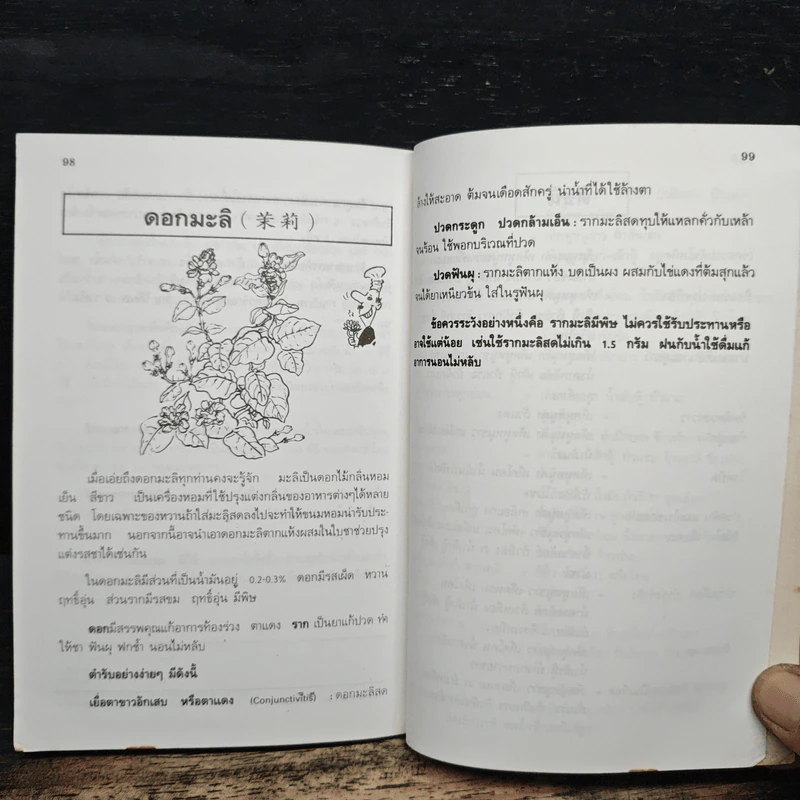 98
ดอกมะลิ ( 茉莉 )
เมื่อเอ่ยถึงดอกมะลิทุกท่านคงจะรู้จัก มะลิเป็นดอกไม้กลิ่นหอม
เย็น สีขาว เป็นเครื่องหอมที่ใช้ปรุงแต่งกลิ่นของอาหารต่างๆได้หลาย
ชนิด โดยเฉพาะของหวานถ้าใส่มะลิสดลงไปจะทำให้ขนมหอมน่ารับประ-
ทานขึ้นมาก นอกจากนี้อาจนำเอาดอกมะลิตากแห้งผสมในใบชาช่วยปรุง
แต่งรสชาได้เช่นกัน
ในดอกมะลิมีส่วนที่เป็นน้ำมันอยู่ 0.2-0.3% ดอกมีรสเผ็ด หวาน
ฤทธิ์อุ่น ส่วนรากมีรสขม ฤทธิ์อุ่น มีพิษ
ดอกมีสรรพคุณแก้อาการท้องร่วง ตาแดง ราก เป็นยาแก้ปวด ทำ
ให้ชา ฟันผุ ฟกช้ำ นอนไม่หลับ
ตำรับอย่างง่ายๆ มีดังนี้
เยื่อตาขาวอักเสบ หรือตาแดง (Conjunctivitis) : ดอกมะลิสด
99
ล้างให้สะอาด ต้มจนเดือดสักครู่ นำน้ำที่ได้ใช้ล้างตา
ปวดกระดูก ปวดกล้ามเอ็น : รากมะลิสดทุบให้แหลกคั่วกับเหล้า
จนร้อน ใช้พอกบริเวณที่ปวด
ปวดฟันผุ : รากมะลิตากแห้ง บดเป็นผง ผสมกับไข่แดงที่ต้มสุกแล้ว
จนได้ยาเหนียวข้น ใส่ในรูฟันผุ
ข้อควรระวังอย่างหนึ่งคือ รากมะลิมีพิษ ไม่ควรใช้รับประทานหรือ
อาจใช้แต่น้อย เช่นใช้รากมะลิสดไม่เกิน 1.5 กรัม ฝนกับน้ำใช้ดื่มแก้
อาการนอนไม่หลับ